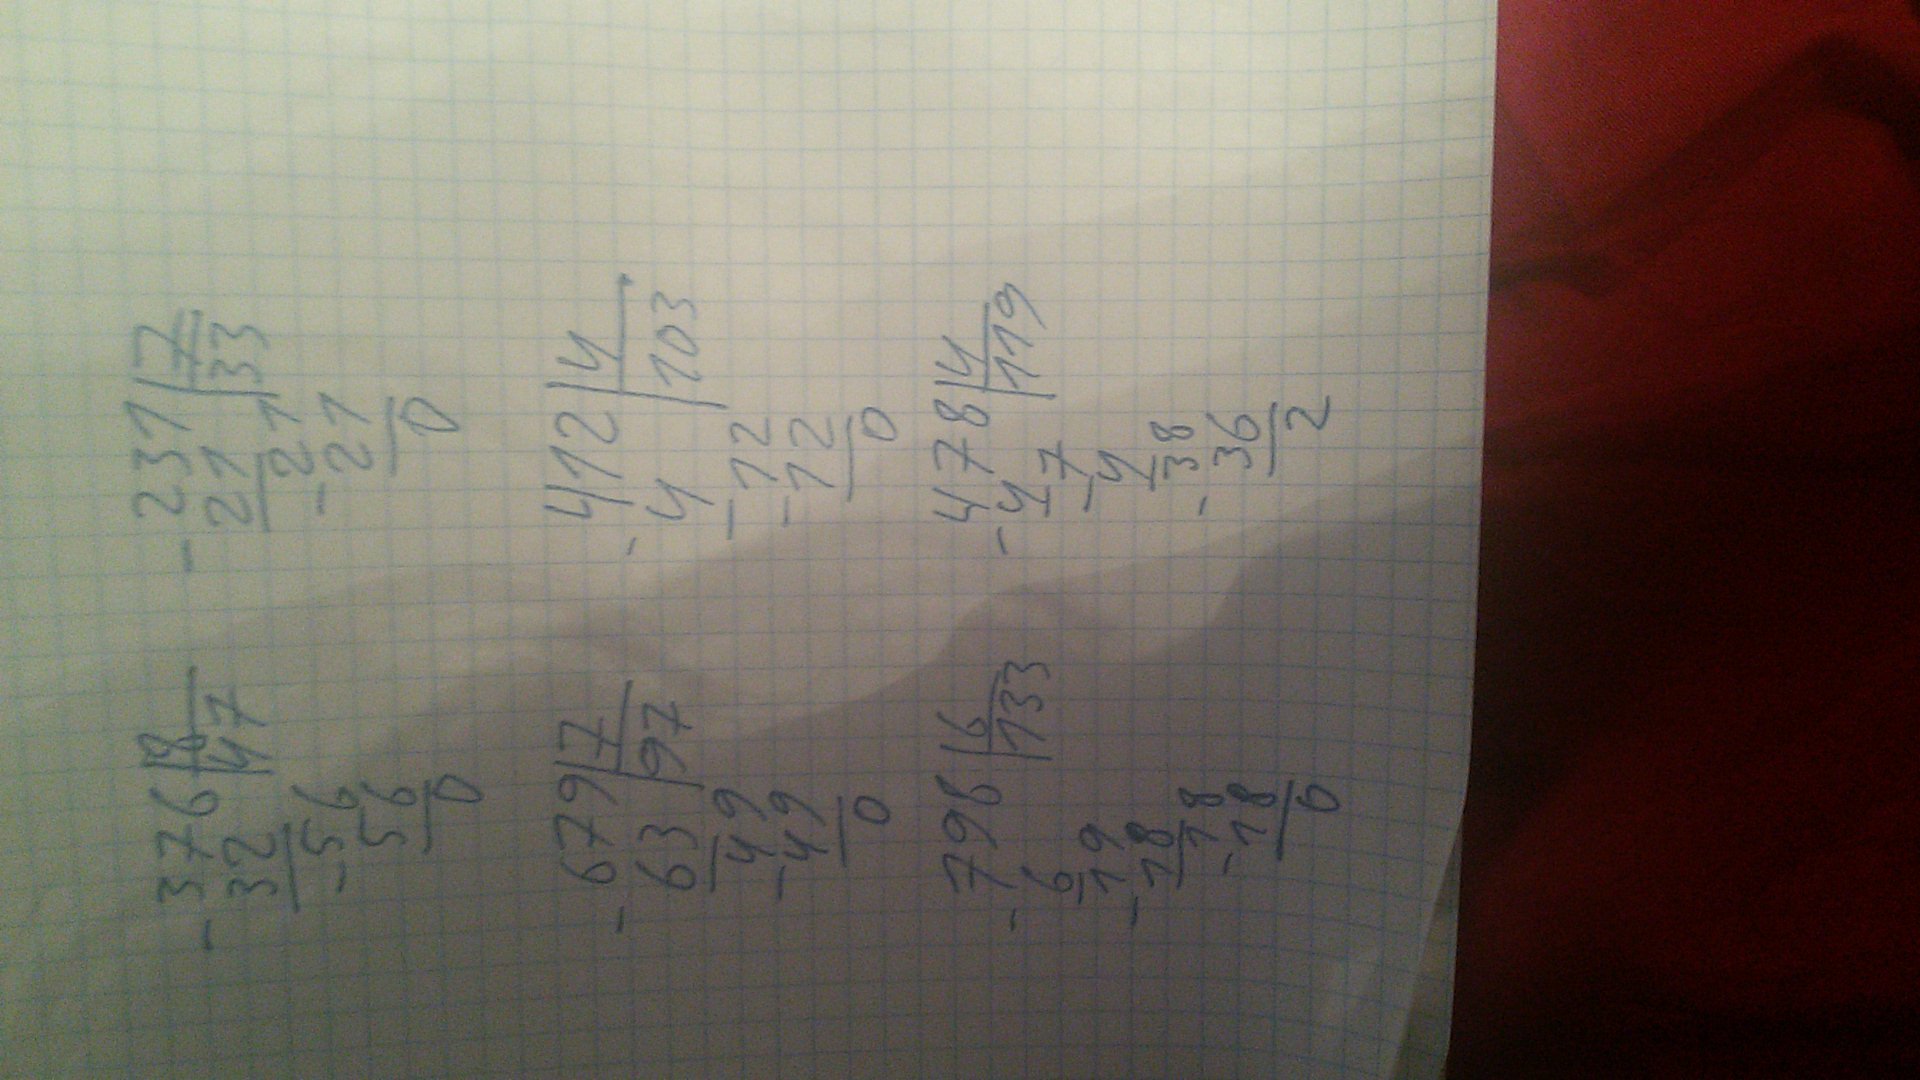 - 376 | 8   - 231 | 7
32 | 47   21 | 33
- 56   - 21
56   21
0   0
- 679 | 7   - 412 | 4
63 | 97   4 | 103
- 49   - 12
49   12
0   0
- 798 | 6   - 478 | 4
6 | 133   4 | 119
- 19   - 7
18   4
- 18   - 38
18   36
0   2